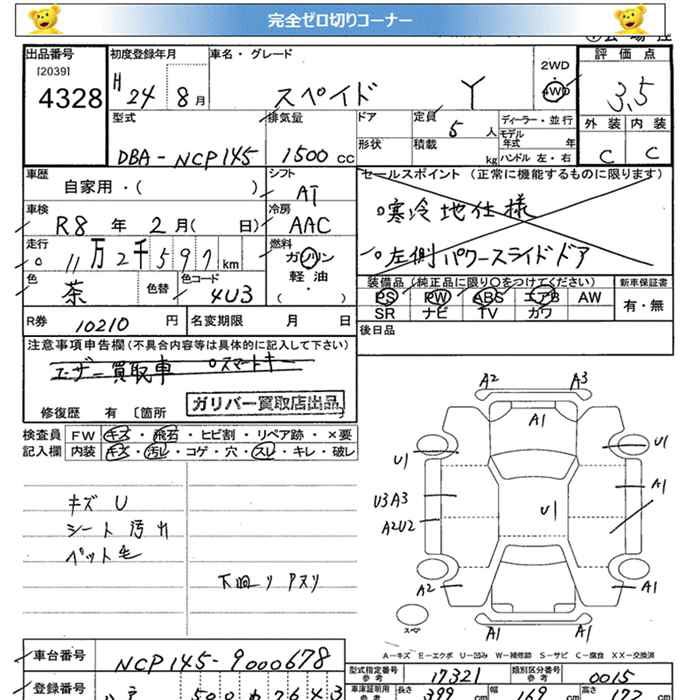 完全ゼロ切りコーナー
出品番号
[2039]
4328
初度登録年月
H 24 8月
車名・グレード
スペイド Y
2WD
4WD
評価点
3.5
外装 内装
C C
型式
DBA-NCP145
排気量
1500 cc
ドア
定員
5 人
形状
積載
kg
ディーラー・並行
モデル年式 年
ハンドル 左・右
車歴
自家用・( )
シフト
AT
車検
R8 年 2月( 日)
冷房
AAC
走行
11万2千597km
燃料
ガソリン
軽油
( )
色
茶
色替
色コード
4U3
セールスポイント(正常に機能するものに限ります)
寒冷地仕様
左側パワースライドドア
装備品(純正品に限り○をつけてください)
PS PW ABS エアB AW
SR ナビ TV カワ
新車保証書
有・無
R券 10210 円
名変期限 月 日
後日品
注意事項申告欄(不具合内容等は具体的に記入して下さい)
ユーザー買取車 スマートキー
ガリバー買取店出品
修復歴 有 〔箇所
検査員記入欄
FW キズ・飛石・ヒビ割・リペア跡・×要
内装 キズ・汚レ・コゲ・穴・スレ・キレ・破レ
キズ U
シート汚れ
ペット毛
下廻りサスリ
A2 A3
A1
U1 U1
U3A3 A1
A2U2 U1
A2 A1
スペア
A1 A1
A-キズ E-エクボ U-凹み W-補修跡 S-サビ C-腐食 XX-交換済
車台番号
NCP145-9000678
型式指定番号 参考
17321
類別区分番号 参考
0015
登録番号
車庫証明用 参考
長さ 399 cm
幅 169 cm
高さ
cm